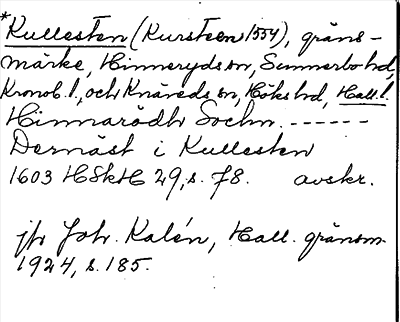 *Kullesten (Kursteen 1554), gräns-
märke, Hinneryds sn, Sunnerbo hd,
Kronob. l., och Knäreds sn, Höks hd, Hall. l.
Hinnarödh Sochn. ------
Dernäst i Kullesten
1603 HSkH 29, s. 78. avskr.
jfr Joh. Kalén, Hall. gränsm.
1924, s. 185.